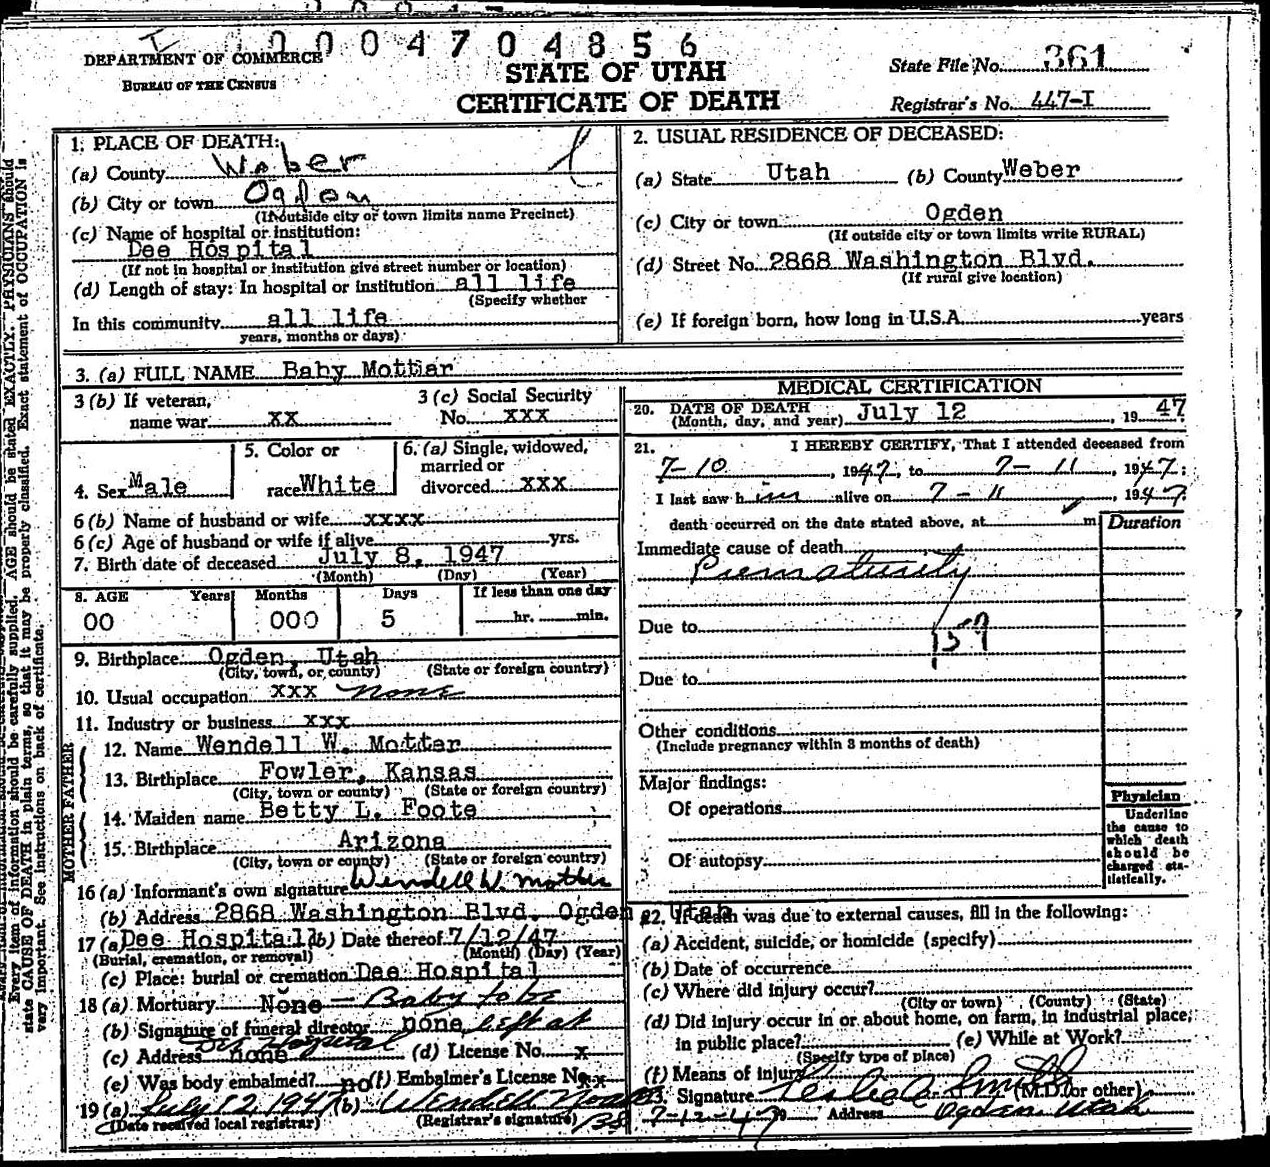 0 0 0 4 7 0 4 8 5 6
DEPARTMENT OF COMMERCE
BUREAU OF THE CENSUS
STATE OF UTAH
CERTIFICATE OF DEATH
State File No. 361
Registrar's No. 447-I
1. PLACE OF DEATH:
(a) County Weber
(b) City or town Ogden
(If outside city or town limits name Precinct)
(c) Name of hospital or institution:
Dee Hospital
(If not in hospital or institution give street number or location)
(d) Length of stay: In hospital or institution all life
(Specify whether
In this community all life
years, months or days)
2. USUAL RESIDENCE OF DECEASED:
(a) State Utah (b) County Weber
(c) City or town Ogden
(If outside city or town limits write RURAL)
(d) Street No. 2868 Washington Blvd.
(If rural give location)
(e) If foreign born, how long in U.S.A. years
3. (a) FULL NAME Baby Motter
3 (b) If veteran,
name war xx
3 (c) Social Security
No. xxx
4. Sex Male
5. Color or
race White
6. (a) Single, widowed,
married or
divorced xxx
6 (b) Name of husband or wife xxxx
6 (c) Age of husband or wife if alive yrs.
7. Birth date of deceased July 8, 1947
(Month) (Day) (Year)
8. AGE Years Months Days If less than one day
00 000 5 hr. min.
9. Birthplace Ogden, Utah
(City, town, or county) (State or foreign country)
10. Usual occupation xxx none
11. Industry or business xxx
FATHER
12. Name Wendell W. Motter
13. Birthplace Fowler, Kansas
(City, town or county) (State or foreign country)
MOTHER
14. Maiden name Betty L. Foote
15. Birthplace Arizona
(City, town or county) (State or foreign country)
16 (a) Informant's own signature Wendell W. Motter
(b) Address 2868 Washington Blvd. Ogden, Utah
17 (a) Dee Hospital (b) Date thereof 7/12/47
(Burial, cremation, or removal) (Month) (Day) (Year)
(c) Place: burial or cremation Dee Hospital
18 (a) Mortuary None - Baby to be
(b) Signature of funeral director none left at
Dee Hospital
(c) Address none (d) License No. x
(e) Was body embalmed? no (f) Embalmer's License No. x
19 (a) July 12, 1947 (b) Wendell
(Date received local registrar) (Registrar's signature)
MEDICAL CERTIFICATION
20. DATE OF DEATH
(Month, day, and year) July 12, 1947
21. I HEREBY CERTIFY, That I attended deceased from
7-10, 1947, to 7-11, 1947;
I last saw him alive on 7-11, 1947
death occurred on the date stated above, at m
Duration
Immediate cause of death
Prematurity
Due to
159
Due to
Other conditions
(Include pregnancy within 3 months of death)
Major findings:
Of operations
Of autopsy
Physician
Underline
the cause to
which death
should be
charged sta-
tistically.
22. If death was due to external causes, fill in the following:
(a) Accident, suicide, or homicide (specify)
(b) Date of occurrence
(c) Where did injury occur?
(City or town) (County) (State)
(d) Did injury occur in or about home, on farm, in industrial place,
in public place? (e) While at Work?
(Specify type of place)
(f) Means of injury
23. Signature Leslie A. Smith (M.D. or other)
7-12-47 Address Ogden Utah
Every item of information should be carefully supplied. AGE should be stated EXACTLY. PHYSICIANS should
state CAUSE OF DEATH in plain terms, so that it may be properly classified. Exact statement of OCCUPATION is
very important. See instructions on back of certificate.